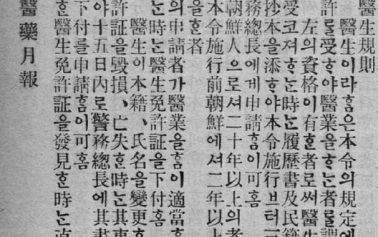 醫生規則
醫生이라홈은本令의規定에
許를受ᄒᆞ야醫業을ᄒᆞᄂᆞᆫ者를謂
左의資格이有ᄒᆞᆫ者로써醫生
受코져ᄒᆞᄂᆞᆫ時ᄂᆞᆫ履歷書及民籍
抄本을添ᄒᆞ야本令施行브터三
務總長에게申請홈이可홈
朝鮮人으로셔二十年以上의者
本令施行前朝鮮에셔二年以上
者
의申請者가醫業을홈이適當
ᄂᆞᆫ時ᄂᆞᆫ醫生免許証을下付홈
醫生이本籍、氏名을變更
許証을毀損、亡失ᄒᆞᆫ時ᄂᆞᆫ其事
야十五日內로警務總長에게其書
下付를申請홈이可홈
ᄒᆞᆫ醫生免許証을發見ᄒᆞᆫ時ᄂᆞᆫ
醫藥月報